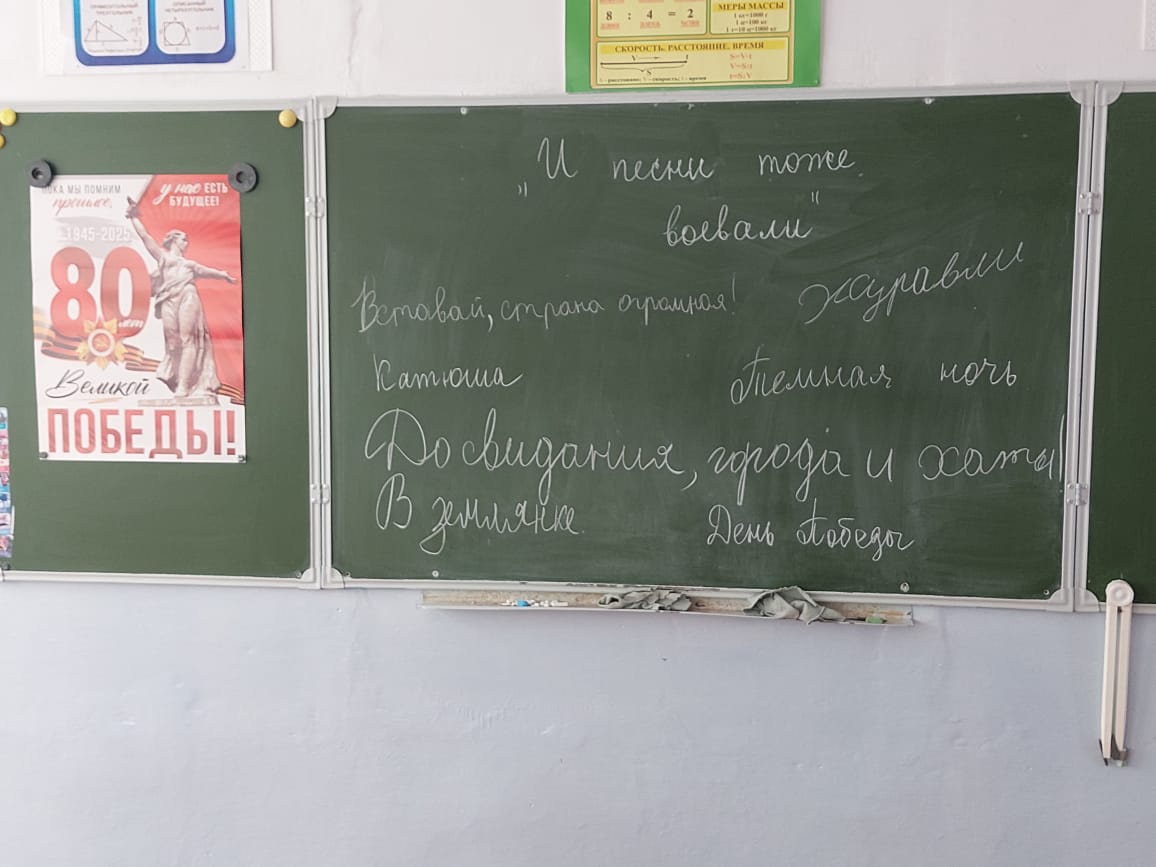 ПРЯМОУГОЛЬНЫЙ ТРЕУГОЛЬНИК
ОПИСАННЫЙ ЧЕТЫРЕХУГОЛЬНИК
8 : 4 = 2
МЕРЫ МАССЫ
1 кг=1000 г
1 ц=100 кг
1 т=10 ц=1000 кг
СКОРОСТЬ. РАССТОЯНИЕ. ВРЕМЯ
V
S
S - расстояние; V - скорость; t - время
ПОКА МЫ ПОМНИМ
прошлое,
у нас ЕСТЬ
БУДУЩЕЕ!
1945-2025
80
лет
Великой
ПОБЕДЫ!
„И песни тоже
воевали"
Вставай, страна огромная!
Журавли
Катюша
Темная ночь
До свидания, города и хаты!
В землянке.
День Победы